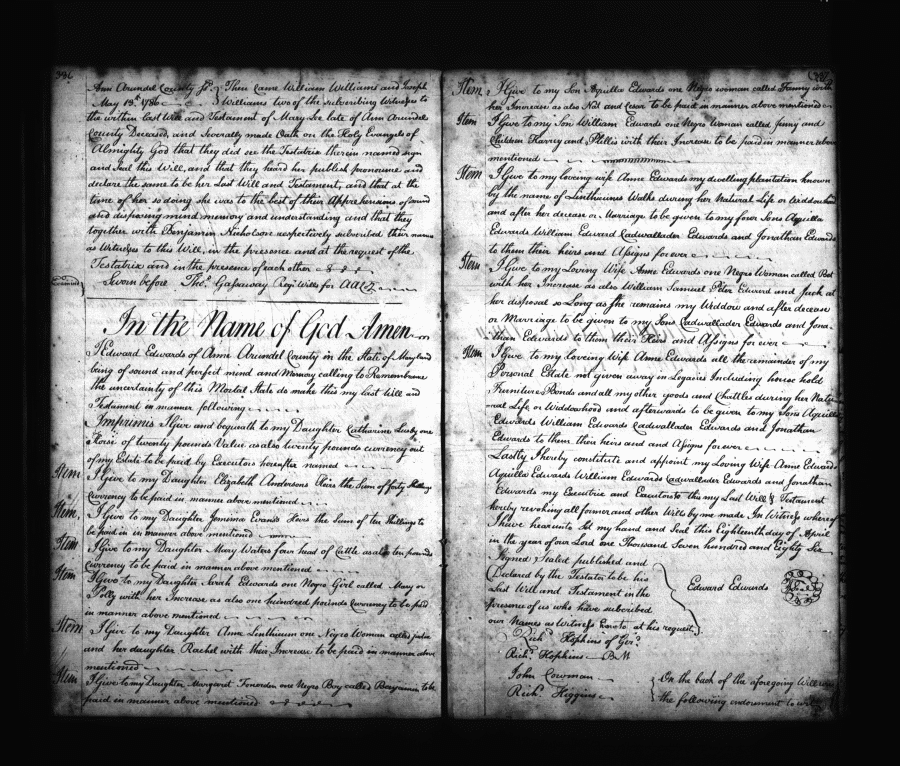 396
Ann Arundel County Sst Then Came William Williams and Joseph
May 13th 1786 Williams two of the subscribing Witnesses to
the within Last Will and Testament of Mary Lee late of Ann Arundel
County Deceased, and Severally made Oath on the Holy Evangels of
Almighty God that they did see the Testatrix therein named sign
and Seal this Will, and that they heard her publish pronounce and
declare the same to be her Last Will and Testament, and that at the
time of her so doing she was to the best of their Apprehensions of sound
and disposing mind memory and understanding and that they
together with Benjamin Nicholson respectively subscribed their names
as Witnesses to this Will, in the presence and at the request of the
Testatrix and in the presence of each other
Sworn before Thos. Gassaway Regr Wills for AA Cty
In the Name of God Amen
I Edward Edwards of Anne Arundel County in the State of Maryland
being of sound and perfect mind and Memory calling to Remembrance
the uncertainty of this Mortal State do make this my last Will and
Testament in manner following
Imprimis I Give and bequeath to my Daughter Catharine Lusby one
Horse of twenty pounds Value as also twenty pounds currency out
of my Estate to be paid by Executors hereafter named
Item I Give to my Daughter Elizabeth Andersons Heirs the Sum of forty Shillings
Currency to be paid in manner above mentioned
Item I Give to my Daughter Jemima Evans Heirs the Sum of ten Shillings to
be paid in in manner above mentioned
Item I Give to my Daughter Mary Waters four head of Cattle as also ten pounds
Currency to be paid in manner above mentioned
Item I Give to my Daughter Sarah Edwards one Negro Girl called Mary or
Polly with her Increase as also one hundred pounds Currency to be paid
in manner above mentioned
Item I Give to my Daughter Ann Linthicum one Negro Woman called
and her daughter Rachel with their Increase to be paid in manner above
mentioned
Item I Give to my Daughter Margaret one Negro Boy called Benjamin to be
paid in manner above mentioned
Item I Give to my Son Aquilla Edwards one Negro woman called Fanny with
her Increase as also Ned and Cesar to be paid in manner above mentioned
Item I Give to my Son William Edwards one Negro Woman called Jenny and
Children Harry and Phillis with their Increase to be paid in manner above
mentioned
Item I Give to my loveing wife Anne Edwards my dwelling plantation known
by the name of Linthicums Walks during her Natural Life or Widdowhood
and after her decease or Marriage to be given to my four Sons Aquilla
Edwards William Edward Cadwallader Edwards and Jonathan Edwards
to them their heirs and Assigns for ever
Item I Give to my Loving Wife Anne Edwards one Negro Woman called
with her Increase as also William Samuel Peter Edward and Jack at
her disposal so Long as she remains my Widdow and after decease
or Marriage to be given to my Sons Cadwallader Edwards and Jona-
than Edwards to them their Heirs and Assigns for ever
Item I Give to my loveing Wife Anne Edwards all the remainder of my
Personal Estate not given away in Legacies Including house hold
Furniture Bonds and all my other goods and Chattles during her Natu-
ral Life or Widdowhood and afterwards to be given to my Sons Aquilla
Edwards William Edwards Cadwallader Edwards and Jonathan
Edwards to them their heirs and and Assigns for ever
Lastly I hereby constitute and appoint my Loving Wife Anne Edwards
Aquilla Edwards William Edwards Cadwallader Edwards and Jonathan
Edwards my Executrix and Executors to this my Last Will & Testament
hereby revoking all former and other Wills by me made In Witness whereof
I have hereunto set my hand and Seal this Eighteenth day of April
in the year of our Lord one Thousand Seven hundred and Eighty Six
Signed Sealed published and
Declared by the Testator to be his
Last Will and Testament in the
presence of us who have subscribed
our Names as Witness hereto at his request
Edward Edwards
Richd Hopkins of Gerd
Richd Hopkins
John Cowman
Richd Higgins
On the back of the aforegoing Will was
the following endorsment to wit